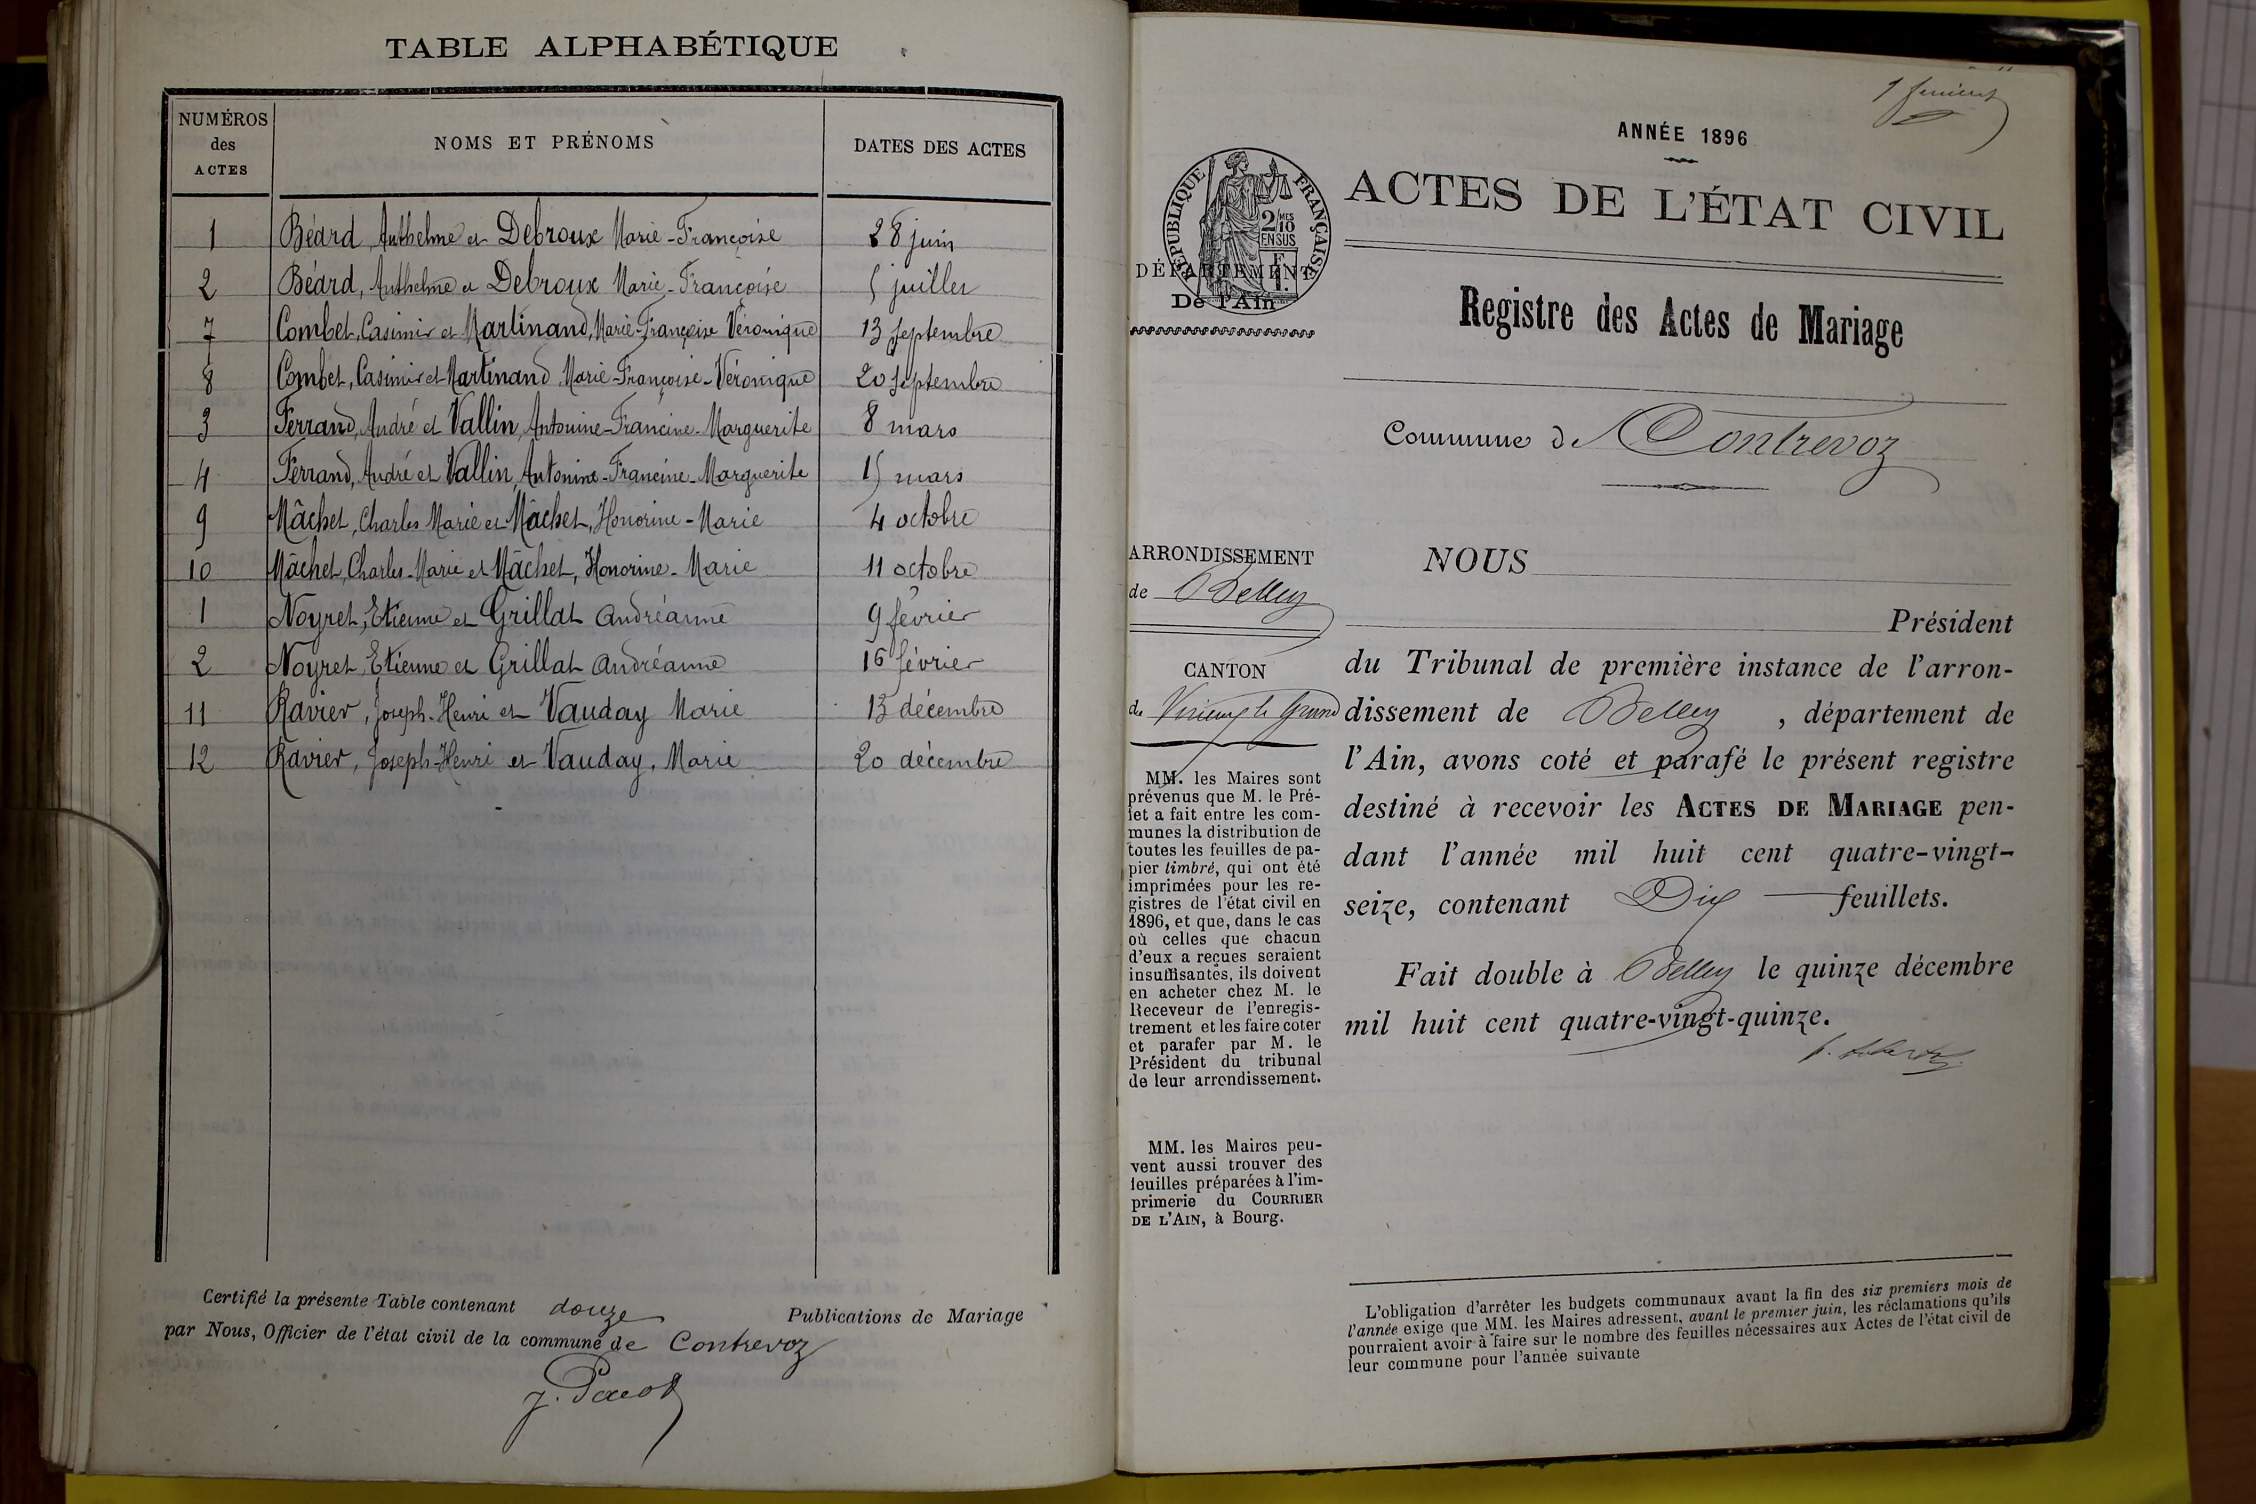 TABLE ALPHABÉTIQUE
NUMÉROS des ACTES
NOMS ET PRÉNOMS
DATES DES ACTES
1 Béard, Anthelme et Debroux Marie-Françoise 28 juin
2 Béard, Anthelme et Debroux Marie-Françoise 5 juillet
7 Combet, Casimir et Martinand, Marie-Françoise Véronique 13 septembre
8 Combet, Casimir et Martinand Marie-Françoise-Véronique 20 septembre
3 Ferrand, André et Vallin, Antonine-Francine-Marguerite 8 mars
4 Ferrand, André et Vallin, Antonine-Francine-Marguerite 15 mars
9 Mâchet, Charles Marie et Mâchet, Honorine-Marie 4 octobre
10 Mâchet, Charles-Marie et Mâchet, Honorine-Marie 11 octobre
1 Noyret, Etienne et Grillat Andréanne 9 février
2 Noyret, Etienne et Grillat Andréanne 16 février
11 Ravier, Joseph-Henri et Vauday Marie 13 décembre
12 Ravier, Joseph-Henri et Vauday, Marie 20 décembre
Certifié la présente Table contenant douze Publications de Mariage
par Nous, Officier de l'état civil de la commune de Contrevoz
1 feuillet
ANNÉE 1896
RÉPUBLIQUE FRANÇAISE
2/10 MES
EN SUS
F
1.
ACTES DE L'ÉTAT CIVIL
DÉPARTEMENT
De l'Ain
Registre des Actes de Mariage
Commune de Contrevoz
ARRONDISSEMENT
de Belley
CANTON
de Virieu le Grand
MM. les Maires sont
prévenus que M. le Pré-
fet a fait entre les com-
munes la distribution de
toutes les feuilles de pa-
pier timbré, qui ont été
imprimées pour les re-
gistres de l'état civil en
1896, et que, dans le cas
où celles que chacun
d'eux a reçues seraient
insuffisantes, ils doivent
en acheter chez M. le
Receveur de l'enregis-
trement et les faire coter
et parafer par M. le
Président du tribunal
de leur arrondissement.
MM. les Maires peu-
vent aussi trouver des
feuilles préparées à l'im-
primerie du COURRIER
DE L'AIN, à Bourg.
NOUS
Président
du Tribunal de première instance de l'arron-
dissement de Belley, département de
l'Ain, avons coté et parafé le présent registre
destiné à recevoir les ACTES DE MARIAGE pen-
dant l'année mil huit cent quatre-vingt-
seize, contenant Dix feuillets.
Fait double à Belley le quinze décembre
mil huit cent quatre-vingt-quinze.
L'obligation d'arrêter les budgets communaux avant la fin des six premiers mois de
l'année exige que MM. les Maires adressent, avant le premier juin, les réclamations qu'ils
pourraient avoir à faire sur le nombre des feuilles nécessaires aux Actes de l'état civil de
leur commune pour l'année suivante